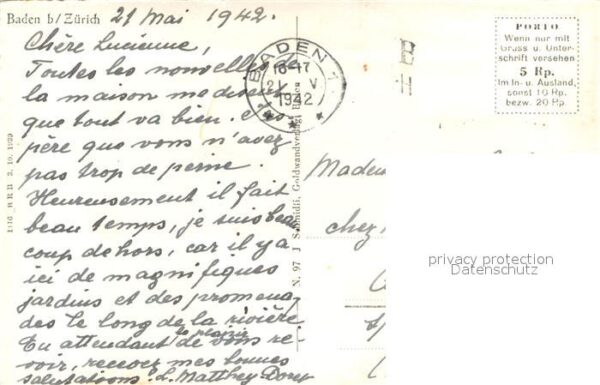 Baden b/Zürich 21 Mai 1942.
Chère Lucienne,
Toutes les nouvelles de
la maison me disent
que tout va bien. J'es-
père que vous n'avez
pas trop de peine.
Heureusement il fait
beau temps, je suis beau
coup dehors, car il y a
ici de magnifiques
jardins et des promena-
des le long de la rivière
En attendant le plaisir de vous re-
voir, recevez mes bonnes
salutations. L. Matthey Doret
BADEN 1
16-17
21. V
1942
PORTO
Wenn nur mit
Gruss u. Unter-
schrift versehen
5 Rp.
im In- u. Ausland,
sonst 10 Rp.
bezw. 20 Rp.
N. 97 J. Schmidli, Goldwandverlag
chez
privacy protection
Datenschutz